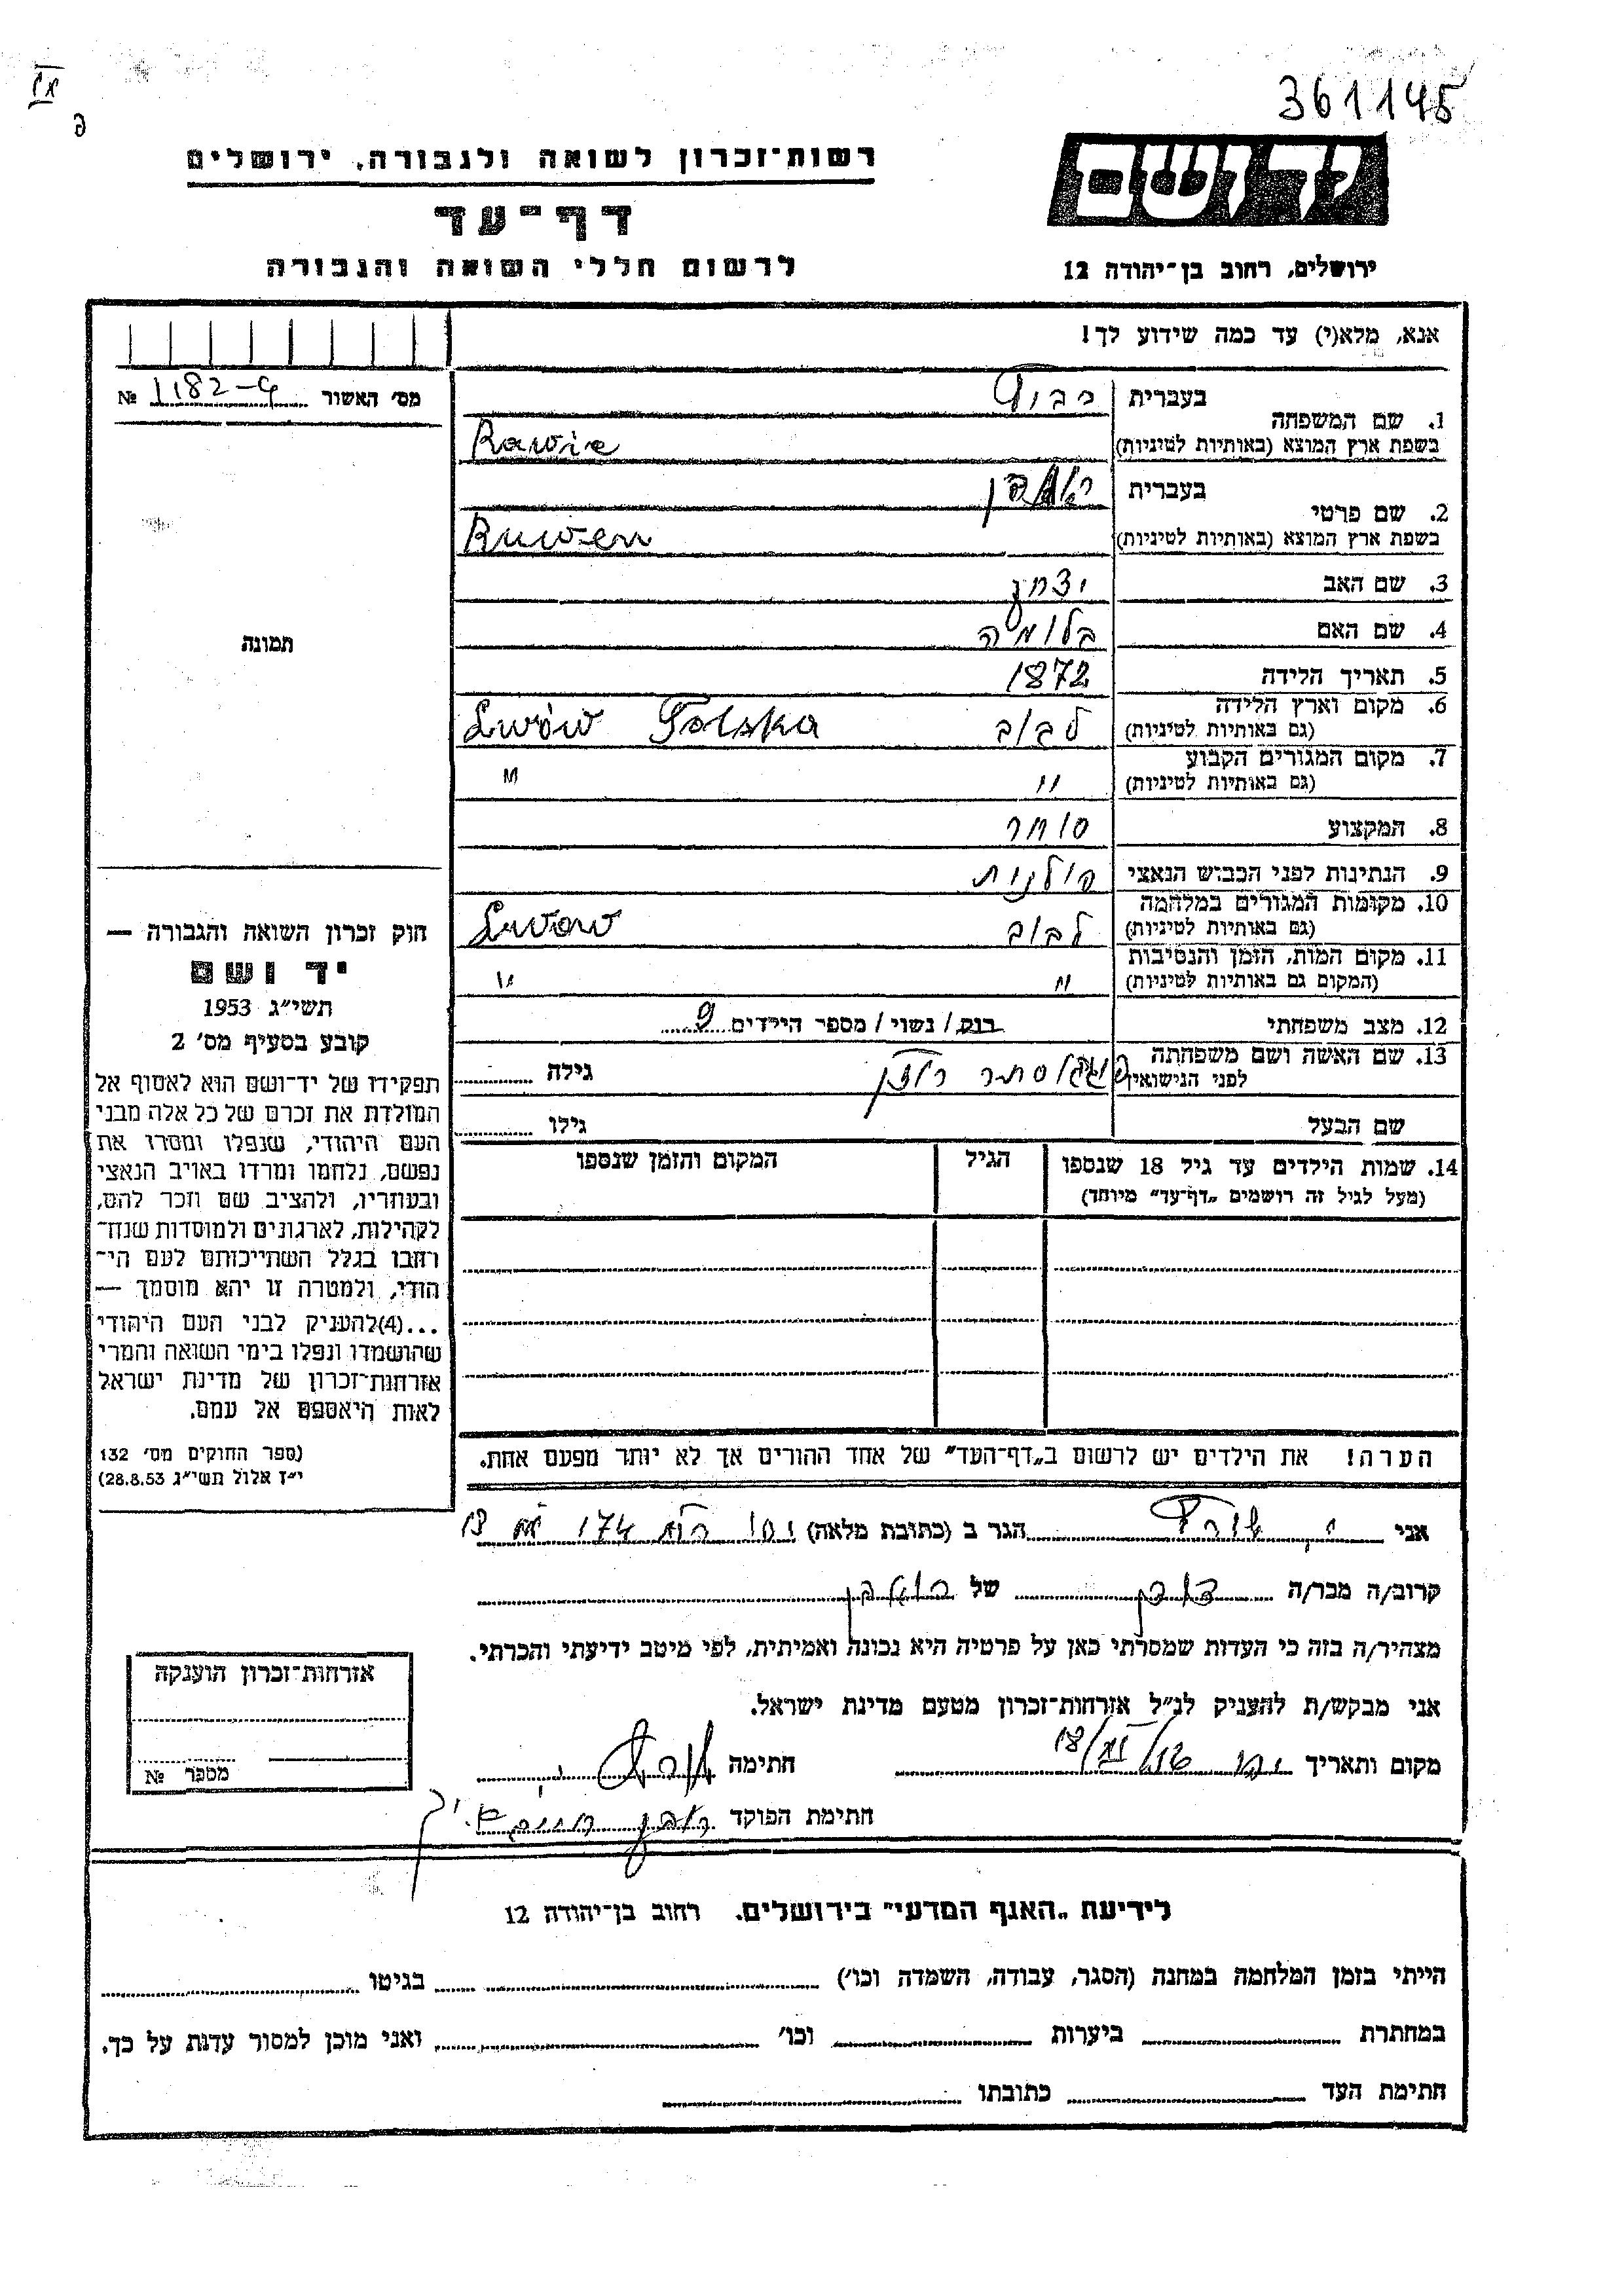 361145
רשות־זכרון לשואה ולגבורה, ירושלים
יד ושם
דף־עד
לרשום חללי השואה והגבורה
ירושלים, רחוב בן־יהודה 12
אנא, מלא(י) עד כמה שידוע לך!
מס׳ האשור № 1182-4
1. שם המשפחה
בעברית
בשפת ארץ המוצא (באותיות לטיניות) Rawie
2. שם פרטי
בעברית ראובן
בשפת ארץ המוצא (באותיות לטיניות) Ruwen
3. שם האב יצחק
4. שם האם
5. תאריך הלידה 1872
6. מקום וארץ הלידה (גם באותיות לטיניות) לבוב Lwów Polska
7. מקום המגורים הקבוע (גם באותיות לטיניות) " "
8. המקצוע סוחר
9. הנתינות לפני הכבוש הנאצי פולנית
10. מקומות המגורים במלחמה (גם באותיות לטיניות) לבוב Lwow
11. מקום המות, הזמן והנסיבות (המקום גם באותיות לטיניות) " "
12. מצב משפחתי רווק / נשוי / מספר הילדים 9
13. שם האשה ושם משפחתה לפני הנישואין גילה
שם הבעל גילו
14. שמות הילדים עד גיל 18 שנספו (מעל לגיל זה רושמים „דף־עד” מיוחד)
הגיל
המקום והזמן שנספו
הערה! את הילדים יש לרשום ב„דף־העד” של אחד ההורים אך לא יותר מפעם אחת.
תמונה
חוק זכרון השואה והגבורה —
יד ושם
תשי״ג 1953
קובע בסעיף מס׳ 2
תפקידו של יד־ושם הוא לאסוף אל
המולדת את זכרם של כל אלה מבני
העם היהודי, שנפלו ומסרו את
נפשם, נלחמו ומרדו באויב הנאצי
ובעוזריו, ולהציב שם וזכר להם,
לקהילות, לארגונים ולמוסדות שנח־
רחבו בגלל השתייכותם לעם הי־
הודי, ולמטרה זו יהא מוסמך —
...(4)להעניק לבני העם היהודי
שהושמדו ונפלו בימי השואה והמרי
אזרחות־זכרון של מדינת ישראל
לאות היאספם אל עמם.
(ספר החוקים מס׳ 132
י״ז אלול תשי״ג 28.8.53)
אני הגר ב (כתובת מלאה) יפו
קרוב/ה מכר/ה של ראובן
מצהיר/ה בזה כי העדות שמסרתי כאן על פרטיה היא נכונה ואמיתית, לפי מיטב ידיעתי והכרתי.
אני מבקש/ת להעניק לנ״ל אזרחות־זכרון מטעם מדינת ישראל.
מקום ותאריך חתימה
חתימת הפוקד
אזרחות־זכרון הוענקה
מספר №
לידיעת „האגף המדעי” בירושלים. רחוב בן־יהודה 12
הייתי בזמן המלחמה במחנה (הסגר, עבודה, השמדה וכו׳) בגיטו
במחתרת ביערות וכו׳ ואני מוכן למסור עדות על כך.
חתימת העד כתובתו